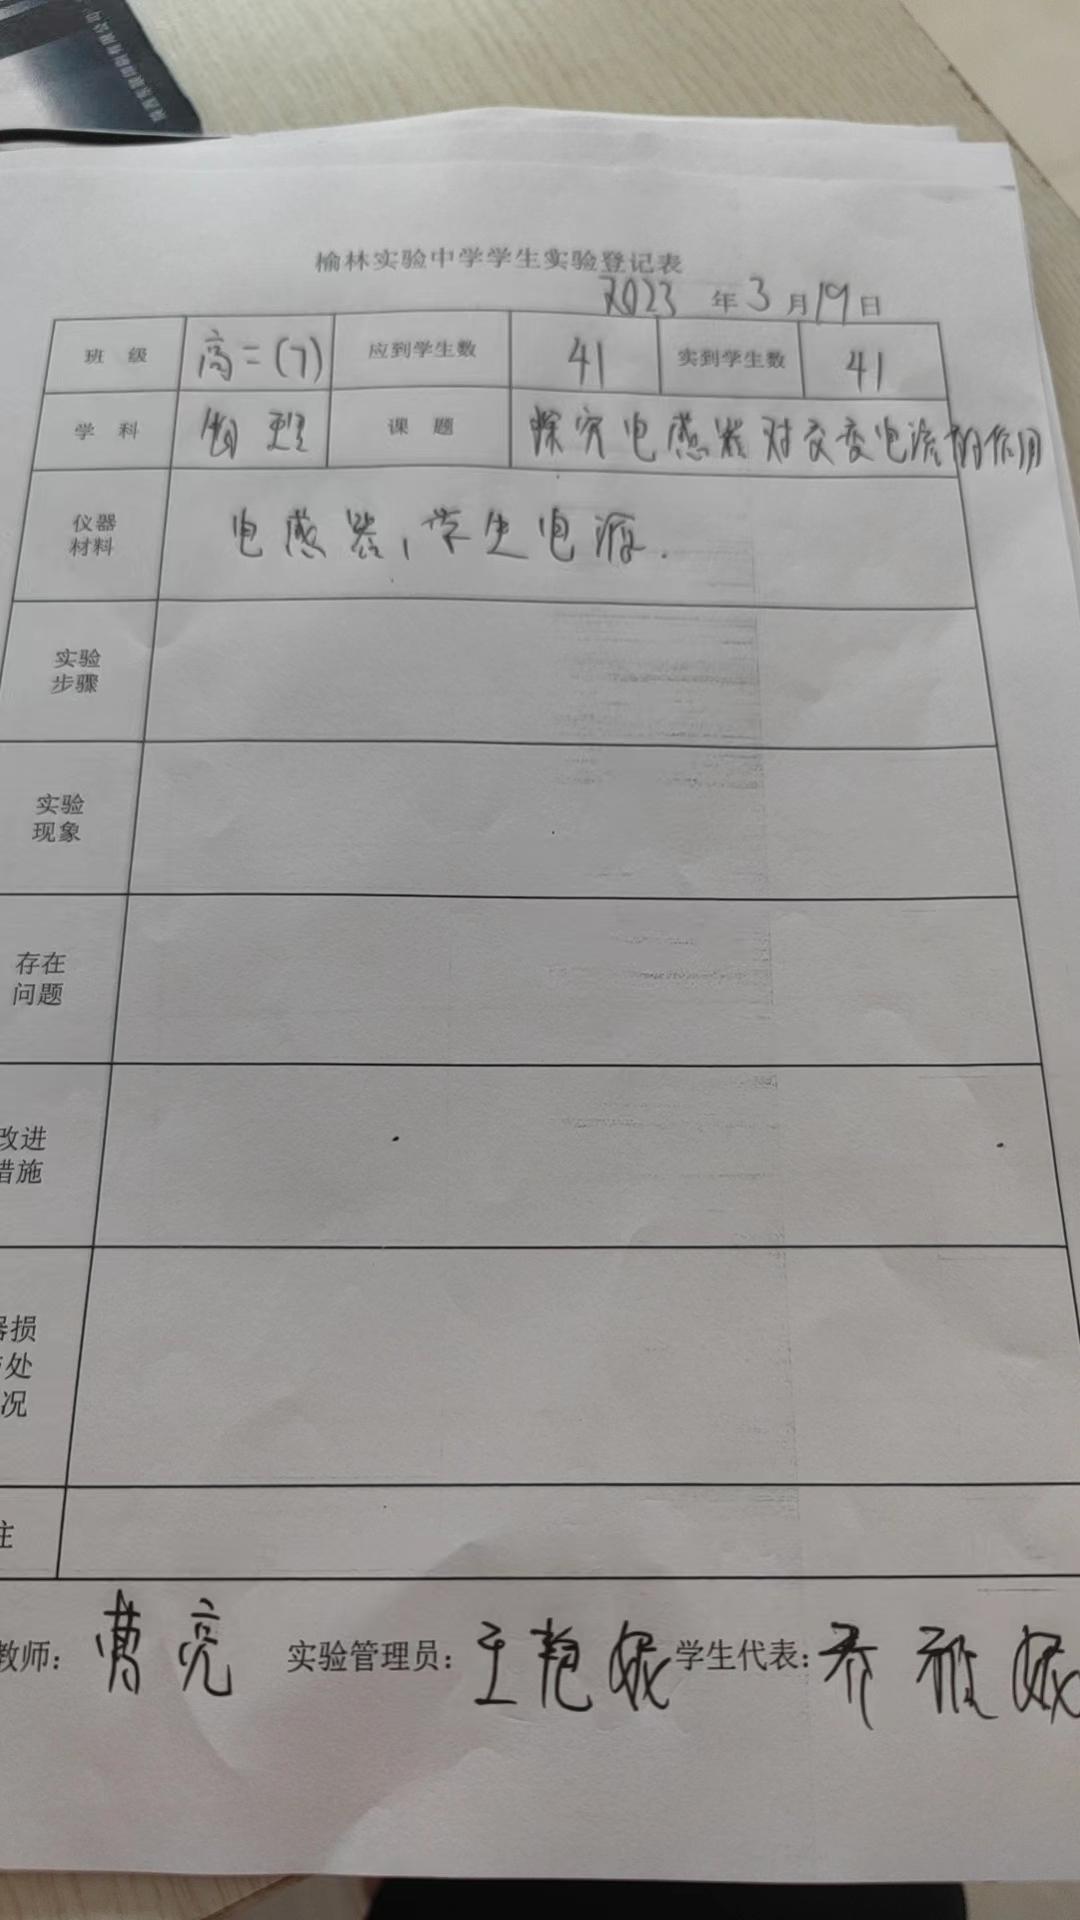 榆林实验中学学生实验登记表
2023 年 3 月 19 日
班 级 高二(7) 应到学生数 41 实到学生数 41
学 科 物理 课 题 探究电感器对交变电流的作用
仪器
材料
电感器,学生电源.
实验
步骤
实验
现象
存在
问题
改进
措施
器损
处
况
注
教师: 曹亮 实验管理员: 王艳妮 学生代表: 乔雅妮